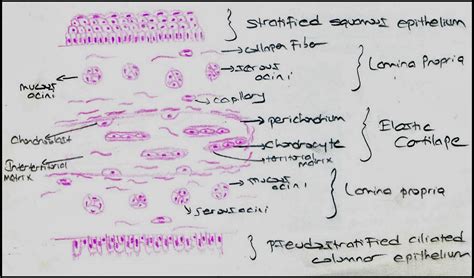 stratified squamous epithelium
collagen Fiber
serous
acini
Lamina Propria
mucous
acini
capillary
perichondrium
Elastic
Cartilage
Chondroblast
chondrocyte
territorial
matrix
Interterritorial
matrix
mucous
acini
Lamina propria
serous acini
pseudostratified ciliated
columnar epithelium